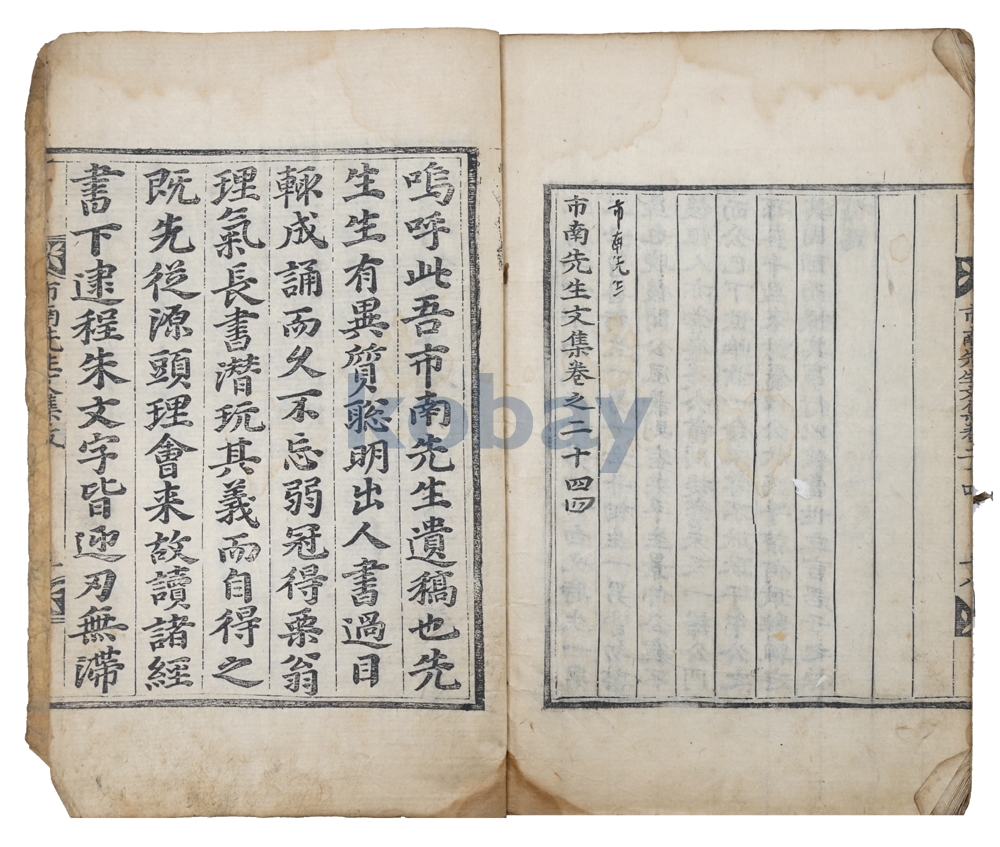 市南先生文集卷之二十四
市南先生
市南先生文集卷之二十四
嗚呼此吾市南先生遺稿也先
生生有異質聡明出人書過目
輒成誦而久不忘弱冠得栗翁
理氣長書潜玩其義而自得之
既先從源頭理會来故讀諸經
書下逮程朱文字皆迎刃無滞
市南先生文集跋
kobay